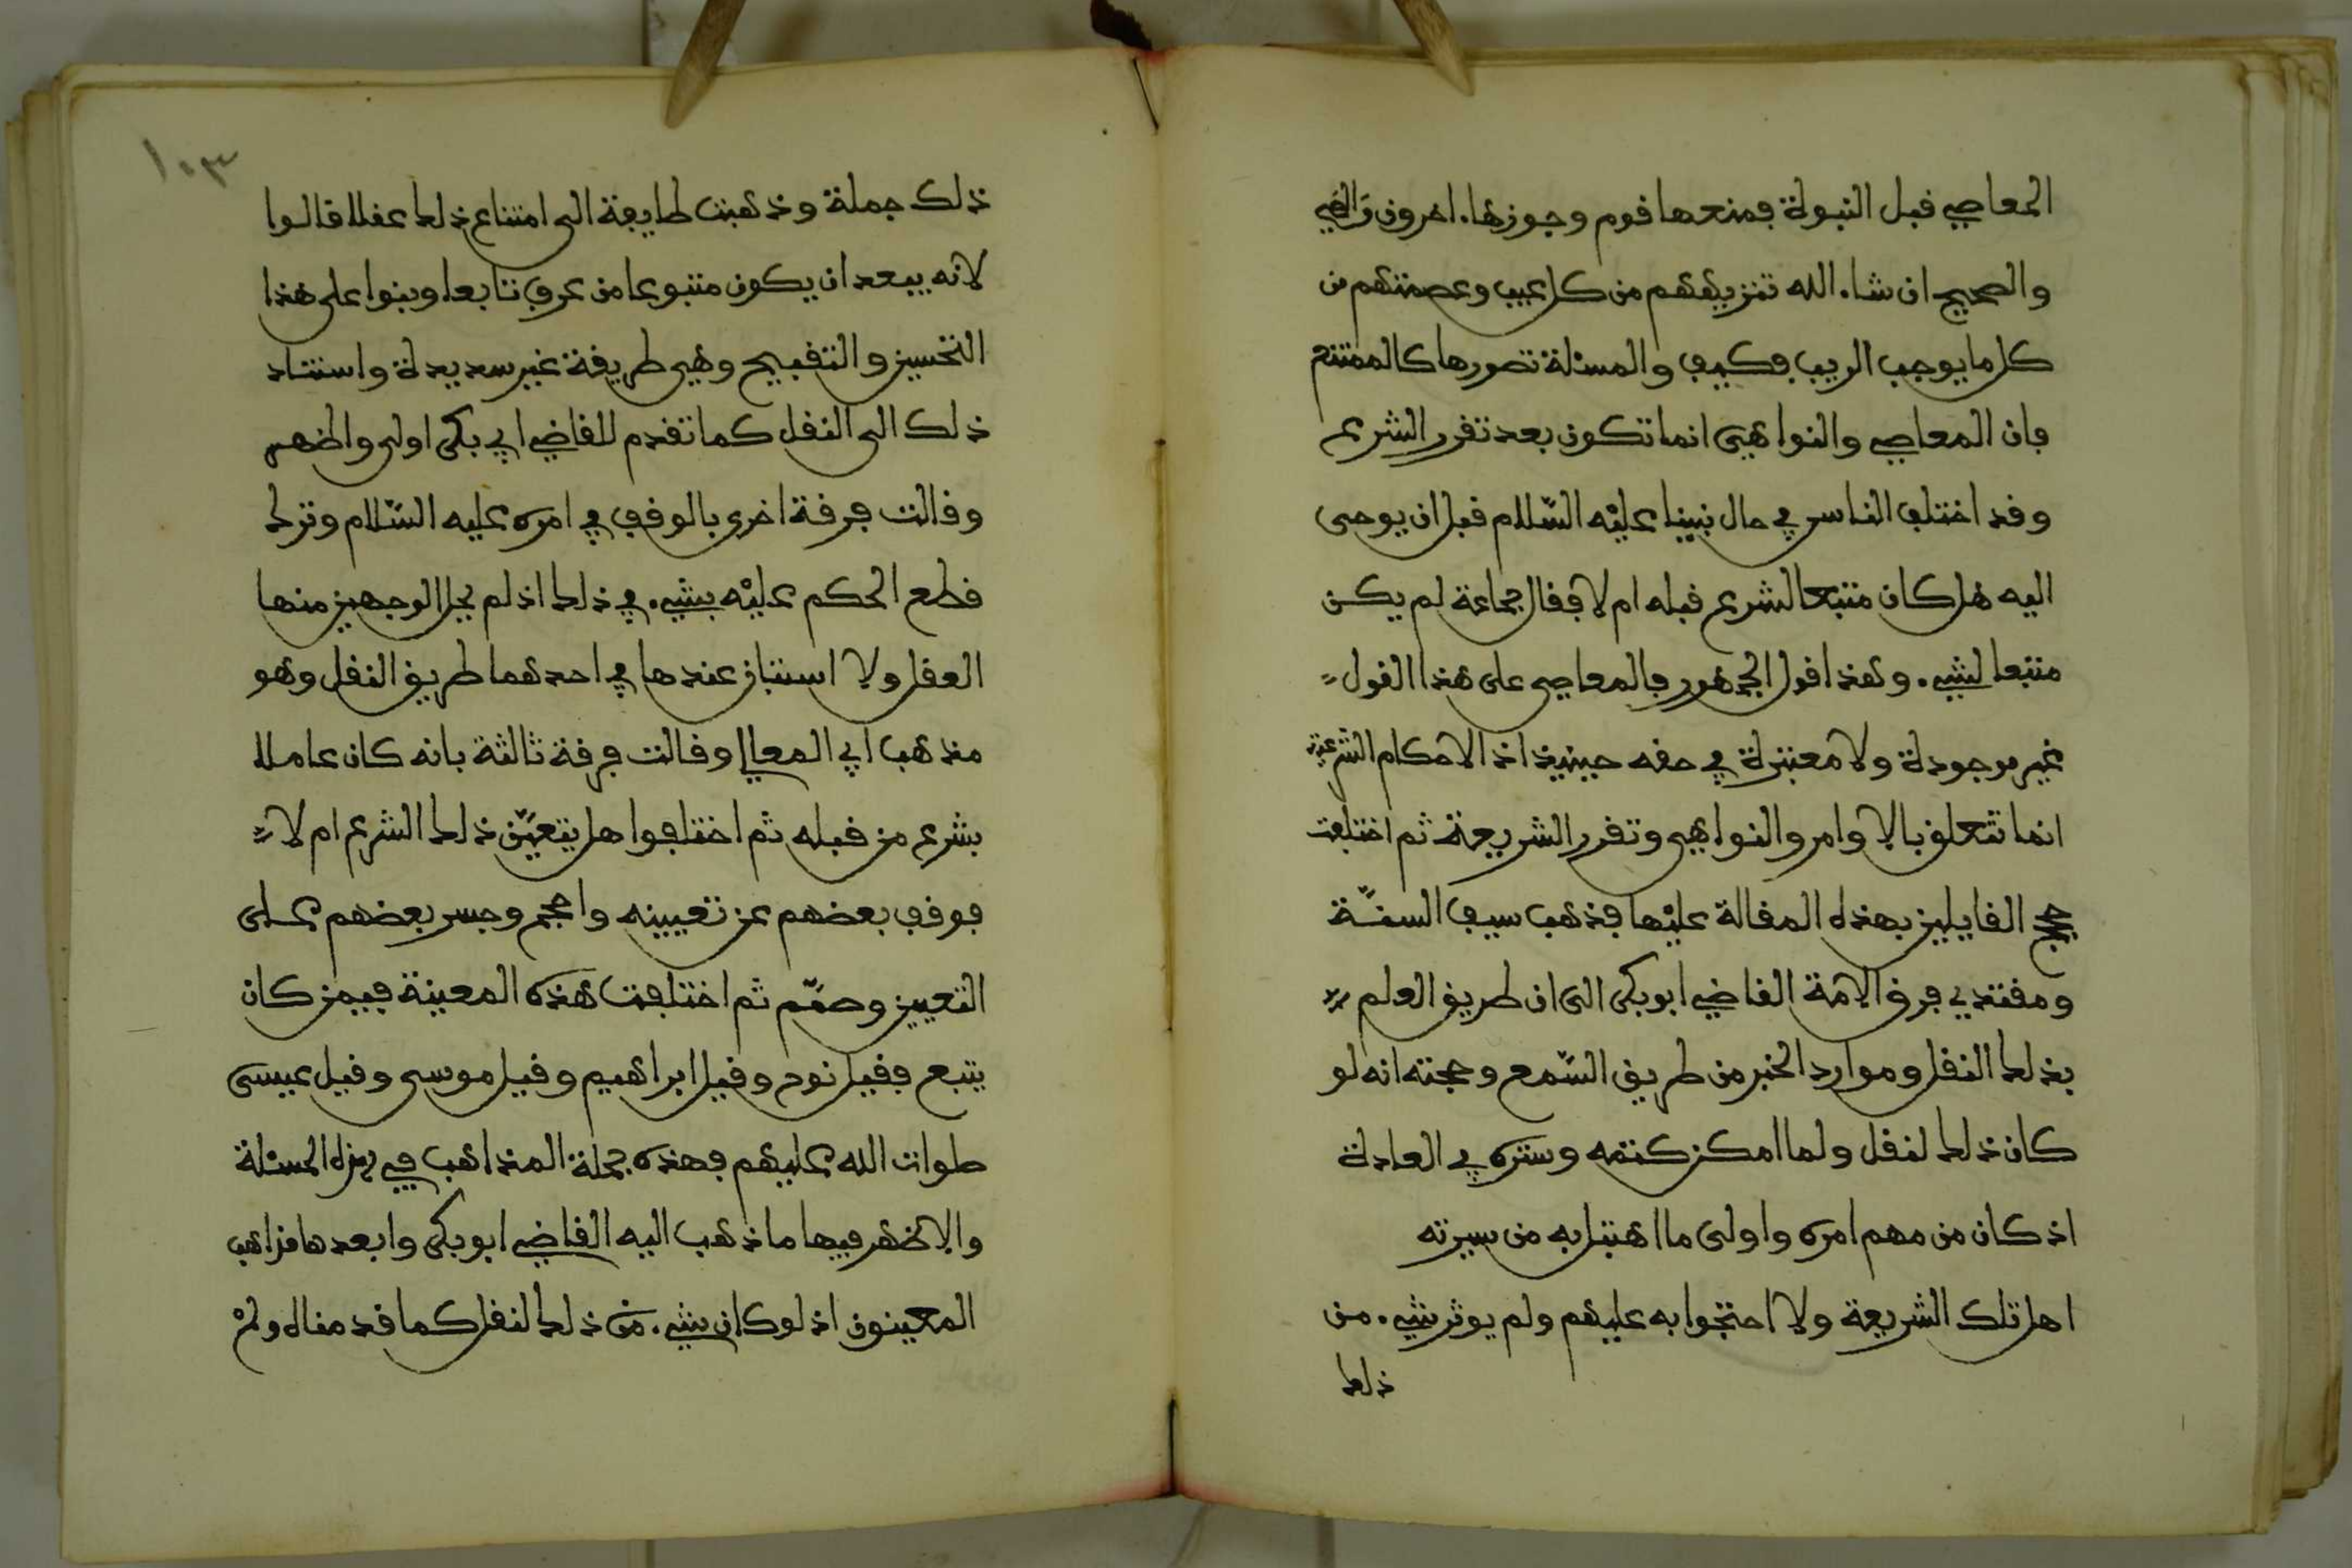 المعاصي قبل النبوة فمنعها قوم وجوزها ءاخرون
والصحيح ان شاء الله تنزيههم من كل عيب وعصمتهم من
كل ما يوجب الريب فكيف والمسئلة تصورها كالممتنع
فان المعاصي والنواهي انما تكون بعد تقرر الشرع
وقد اختلف الناس في حال نبينا عليه السّلام قبل ان يوحى
اليه هل كان متبعا لشرع قبله ام لا فقال جماعة لم يكن
متبعا لشيء وهذا قول الجمهور فالمعاصي على هذا القول
غير موجودة ولا معتبرة في حقه حينيذ اذ الاحكام الشرعية
انما تتعلق بالاوامر والنواهي وتقرر الشريعة ثم اختلفت
حجج القايلين بهذه المقالة عليها فذهب سيف السنّة
ومقتدي فرق الامة القاضي ابو بكر الى ان طريق العلم
بذلك النقل وموارد الخبر من طريق السّمع وحجته انه لو
كان ذلك لنقل ولما امكن كتمه وستره في العادة
اذ كان من مهم امره واولى ما اهتبل به من سيرته
اهل تلك الشريعة ولا احتجوا به عليهم ولم يوثر شيء من
ذلك
١٠٣
ذلك جملة وذهبت طايفة الى امتناع ذلك عقلا قالوا
لانه يبعد ان يكون متبوعا من عرف تابعا وبنوا على هذا
التحسين والتقبيح وهي طريقة غير سديدة واستناد
ذلك الى النقل كما تقدم للقاضي ابي بكر اولى واظهر
وقالت فرقة اخرى بالوقف في امره عليه السّلام وترك
قطع الحكم عليه بشيء في ذلك اذ لم يحل الوجهين منها
العقل ولا استبان عندها في احدهما طريق النقل وهو
مذهب ابي المعالي وقالت فرقة ثالثة بانه كان عاملا
بشرع من قبله ثم اختلفوا هل يتعيّن ذلك الشرع ام لا
فوقف بعضهم عن تعيينه واحجم وجسر بعضهم على
التعيين وصمّم ثم اختلفت هذه المعينة فيمن كان
يتبع فقيل نوح وقيل ابراهيم وقيل موسى وقيل عيسى
صلوات الله عليهم فهذه جملة المذاهب في هذه المسئلة
والاظهر فيها ما ذهب اليه القاضي ابو بكر وابعدها مذاهب
المعينون اذ لو كان شيء من ذلك لنقل كما قدمناه ولم